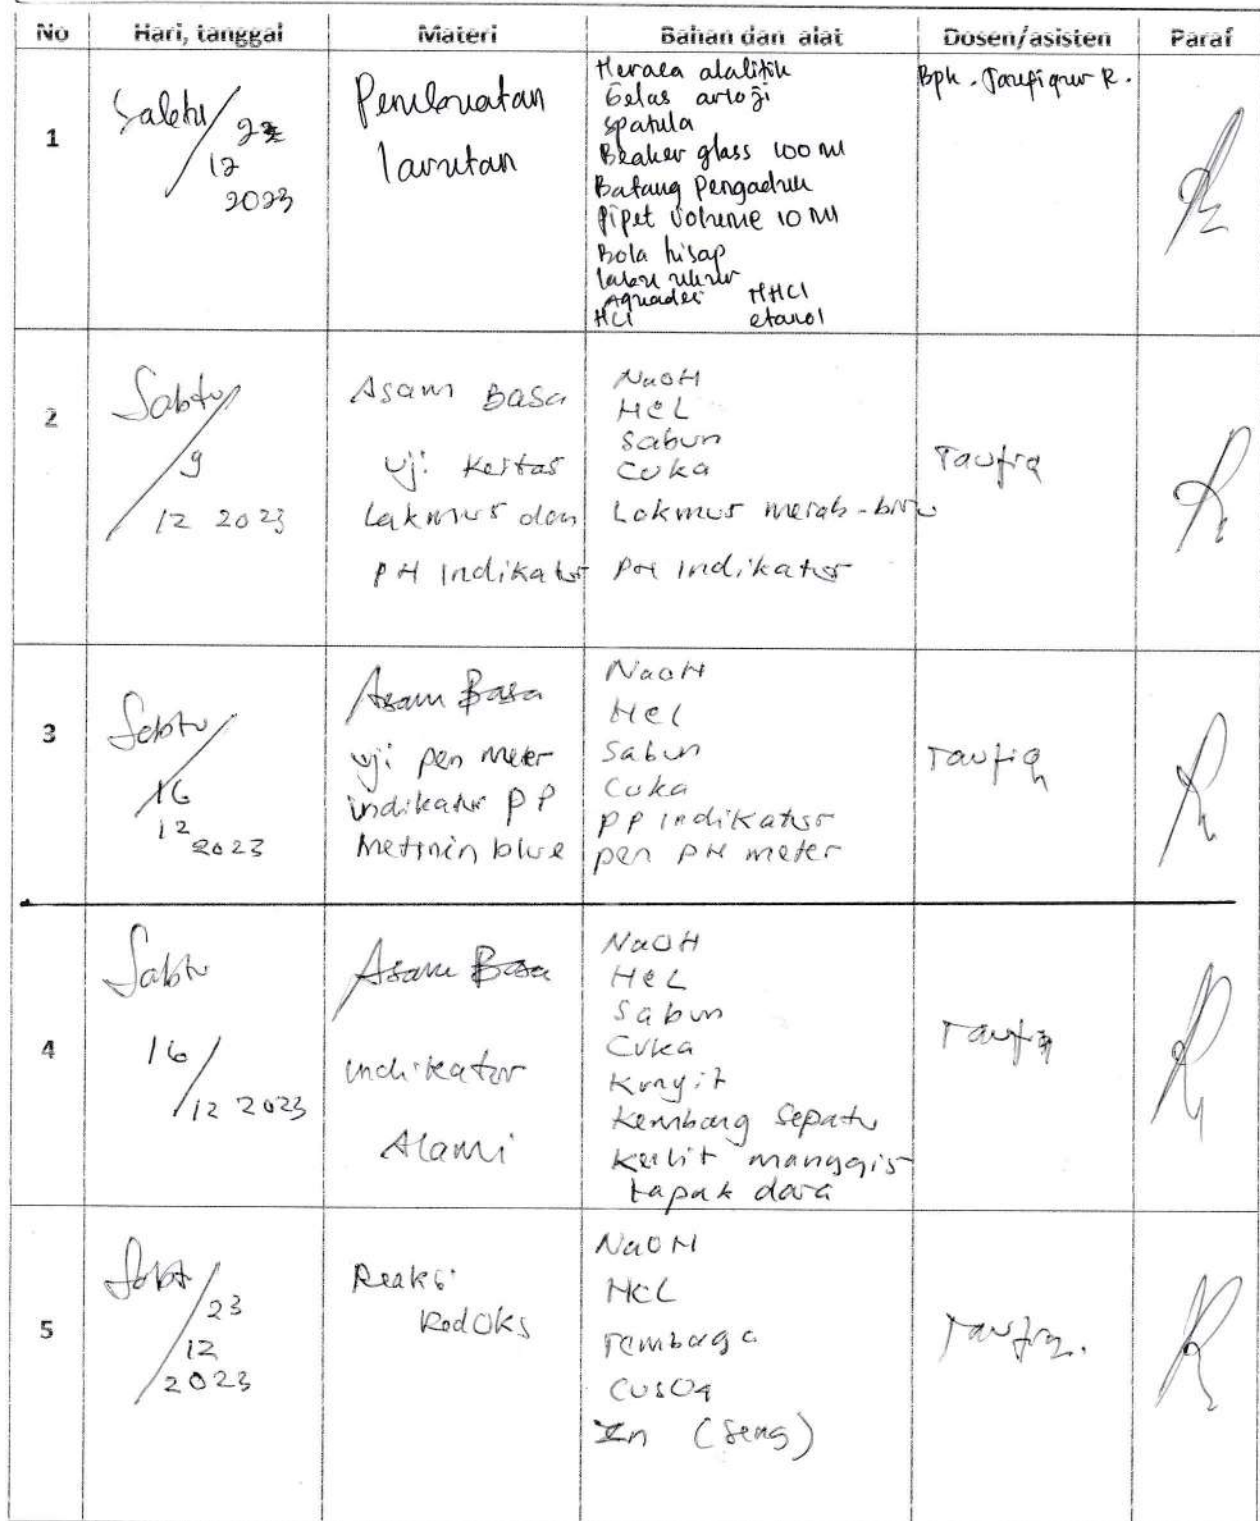 No Hari, tanggal Materi Bahan dan alat Dosen/asisten Paraf
1
Sabtu/
12
2023
Pembuatan
larutan
Neraca alalitik
Gelas arloji
spatula
Beaker glass 100 ml
Batang Pengaduk
Pipet volume 10 ml
Bola hisap
labu ukur
Aquades
HCl etanol
Bpk. Taufiqur R.
2
Sabtu/
9
12 2023
Asam Basa
uji kertas
Lakmus dan
PH Indikator
NaOH
HCL
Sabun
Cuka
Lakmus merah-biru
PH Indikator
Taufiq
3
Sabtu/
16
12
2023
Asam Basa
uji pen meter
indikator PP
Metinin blue
NaOH
HCl
Sabun
Cuka
PP indikator
pen PH meter
Taufiq
4
Sabtu
16/
12 2023
Asam Basa
indikator
Alami
NaOH
HCL
Sabun
Cuka
Kunyit
Kembang Sepatu
Kulit manggis
tapak dara
Taufiq
5
Sabtu/
23
12
2023
Reaksi
Redoks
NaOH
HCL
Tembaga
CUSO4
Zn (Seng)
Taufiq.